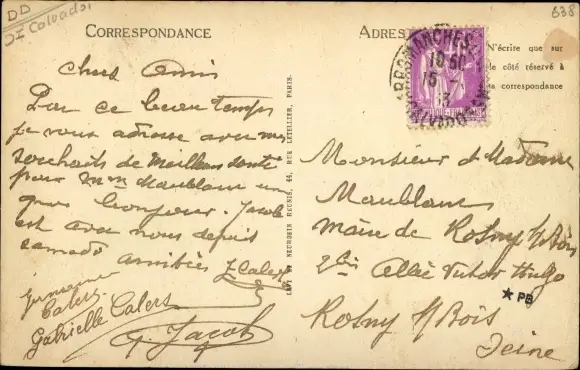 DD
Calvados
638
CORRESPONDANCE
ADRES
N'écrite que sur
le côté réservé à
la correspondance
Chers Amis
Par ce beau temps
je vous adresse avec mes
souhaits de meilleure santé
pour Mme Maublanc un
gros bonjour. Jacob
est avec nous depuis
samedi amitiés J. Calers
Germaine
Calers
Gabrielle Calers
G. Jacob
IMP. NEURDEIN RÉUNIS, 44, RUE LETELLIER, PARIS.
ARROMANCHES
15 - 7
CALVADOS
Monsieur et Madame
Maublanc
maire de Rosny s/Bois
Allée Victor Hugo
★ PB
Rosny s/Bois
Seine